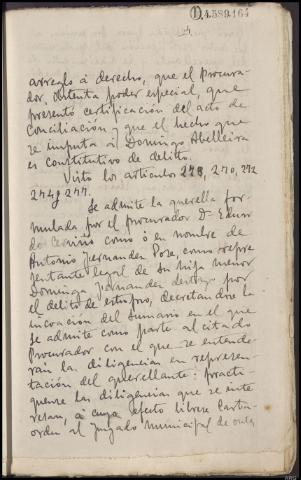 1.589.164
arreglo á derecho, que el procura-
dor, ostenta poder especial, que
presentó certificación del acto de
Conciliación y que el hecho que
se imputa á Domingo Abelleira
es constitutivo de delito.
Visto los articulos 270, 272
274 y 277.
Se admite la querella for-
mulada por el procurador Dn
como ó en nombre de
Antonio Fernandez Pose, como repre
sentante legal de su hija menor
Dominga Fernandez por
el delito de estupro, decretandose la
incoación del sumario en el que
se admite como parte al citado
Procurador con el que se entende-
rán las diligencias en represen-
tación del querellante: practi-
quense las diligencias que se inte
resan, á cuyo efecto librese Carta-
orden al juzgado municipal de